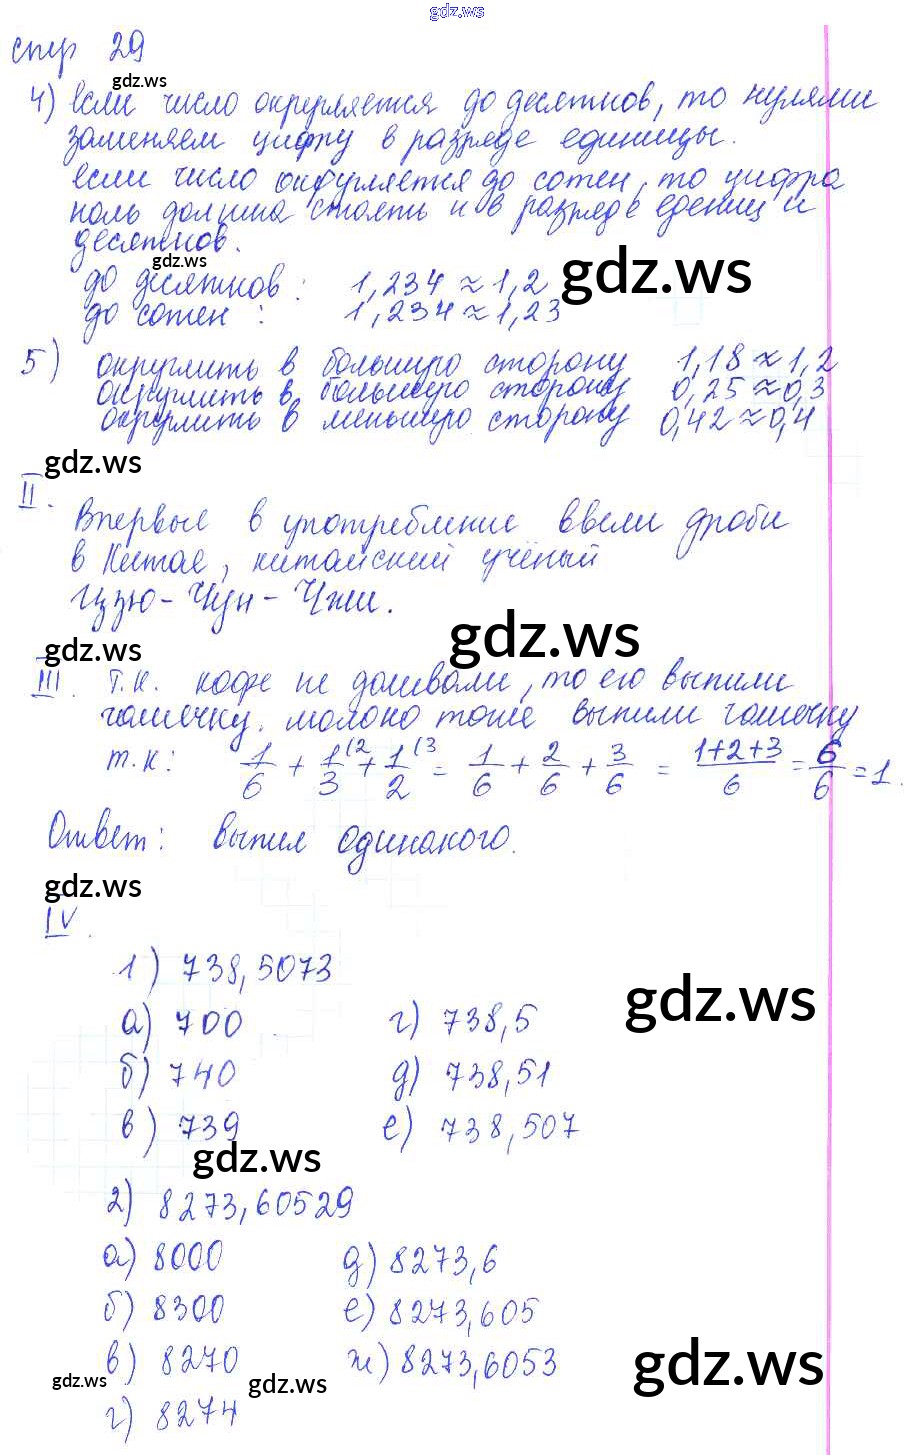 gdz.ws
стр 29
gdz.ws
4) Если число округляется до десятков, то нулями
заменяем цифру в разряде единицы.
Если число округляется до сотен, то цифра
ноль должна стоять и в разряде едениц и
десятков.
gdz.ws
до десятков: 1,234 ≈ 1,2
gdz.ws
до сотен: 1,234 ≈ 1,23
5) округлить в большую сторону 1,18 ≈ 1,2
округлить в большую сторону 0,25 ≈ 0,3
округлить в меньшую сторону 0,42 ≈ 0,4
gdz.ws
II.
Впервые в употребление ввели дроби
в Китае, китайский учёный
Цзю-Чун-Чжи.
gdz.ws
gdz.ws
III. Т.к. кофе не доливали, то его выпили
чашечку. молоко тоже выпили чашечку
т.к: 1/6 + 1/3(2 + 1/2(3 = 1/6 + 2/6 + 3/6 = 1+2+3/6 = 6/6 = 1.
Ответ: выпил одинакого.
gdz.ws
IV.
1) 738,5073
gdz.ws
а) 700 г) 738,5
б) 740 д) 738,51
в) 739 е) 738,507
gdz.ws
2) 8273,60529
а) 8000 д) 8273,6
б) 8300 е) 8273,605
в) 8270 ж) 8273,6053
gdz.ws
gdz.ws
gdz.ws
г) 8274